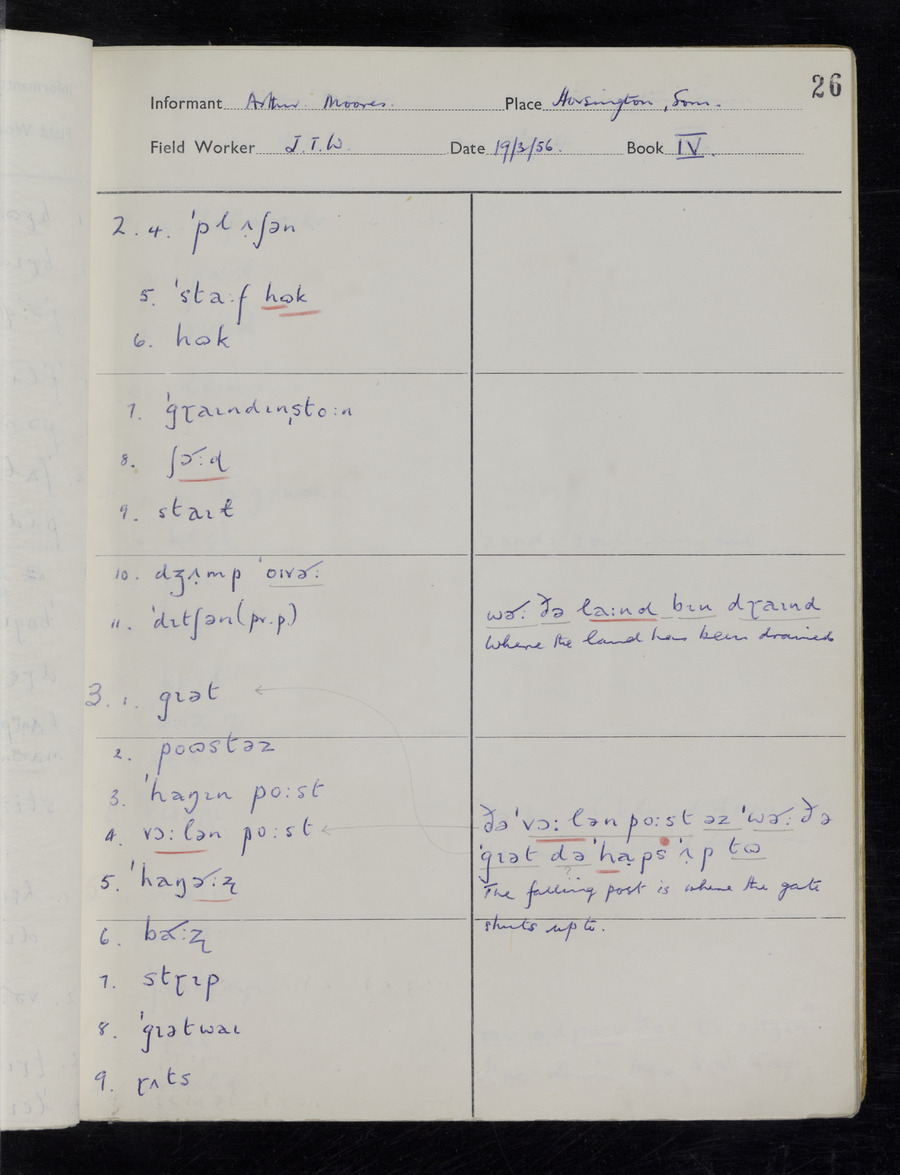 26
Informant Arthur Moores. Place Horsington, Som.
Field Worker J.T.W. Date 19/3/56. Book IV.
2. 4. ˈplʌ̣ʃən
5. ˈsta:f hɷk
6. hɷk
7. ˈgɽaɪndɪn̩sto:n
8. ʃɚ:d
9. staɪɫ
10. dʒʌ̣mp ˈoɪvɚ:
11. ˈdɪtʃən (pr.p.)
wɚ: ðə la:nd bɪn dɽaɪnd
Where the land has been drained
3. 1. gɪət
2. poɷstəz
3. ˈhaŋɪn po:st
4. vɔ:lən po:st
ðə ˈvɔ:lən po:st əz ˈwɚ: ðə
ˈgɪət də ˈhạps ˈʌ̣p tɷ
5. ˈhaŋɚ:ʐ
The falling post is where the gate
shuts up to.
6. bɑ˞:ʐ
7. stɽɪp
8. ˈgɪətwaɪ
9. ɽʌts